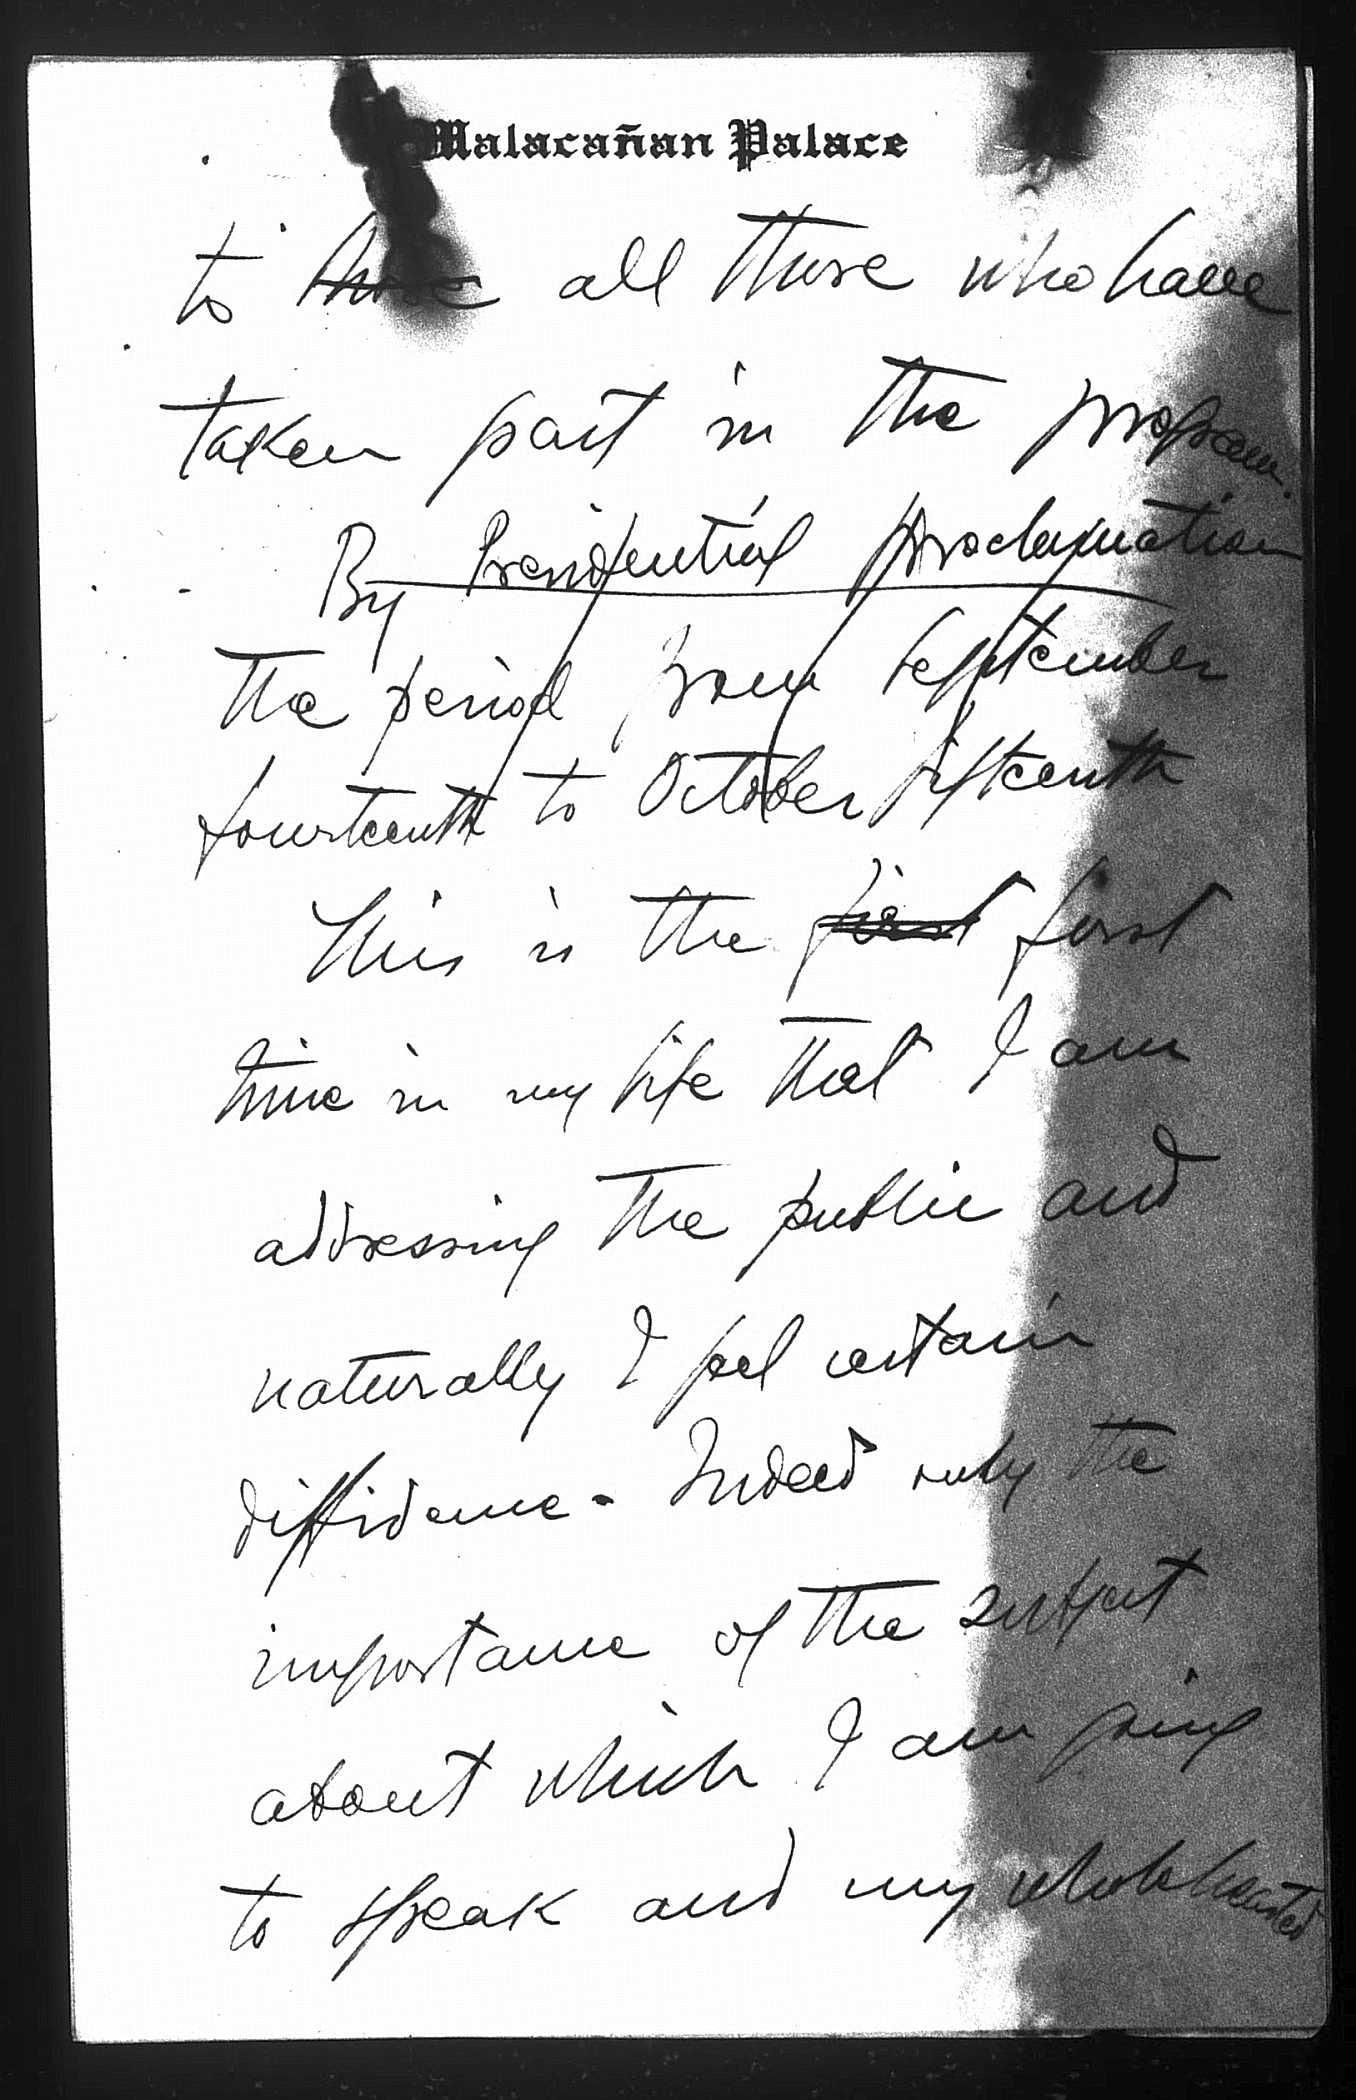 Malacañan Palace
to those all those who have
taken part in the program.
By Presidential Proclamation
the period from September
fourteenth to October fifteenth
This is the first first
time in my life that I am
addressing the public and
naturally I feel certain
diffidence. Indeed only the
importance of the subject
about which I am going
to speak and my wholehearted